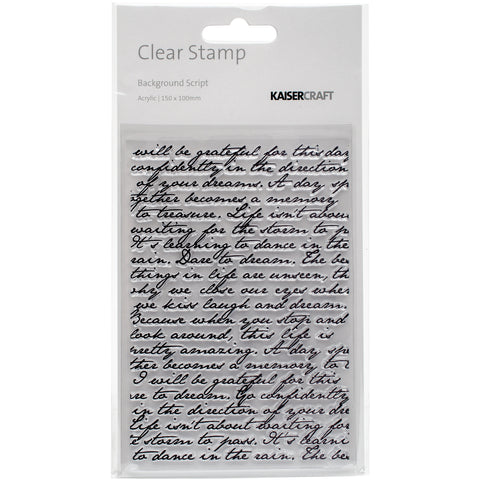 Clear Stamp
Background Script
Acrylic | 150 x 100mm
KAISERCRAFT
will be grateful for this day
confidently in the direction
of your dreams. A day spe
ogether becomes a memory
to treasure. Life isn't abou
waiting for the storm to p
It's learning to dance in the
rain. Dare to dream. The bes
things in life are unseen, th
why we close our eyes when
we kiss laugh and dream.
Because when you stop and
look around, this life is
pretty amazing. A day spe
ther becomes a memory to t
I will be grateful for this
re to dream. Go confidently
in the direction of your dre
Life isn't about waiting for
e storm to pass. It's learni
to dance in the rain. The bes